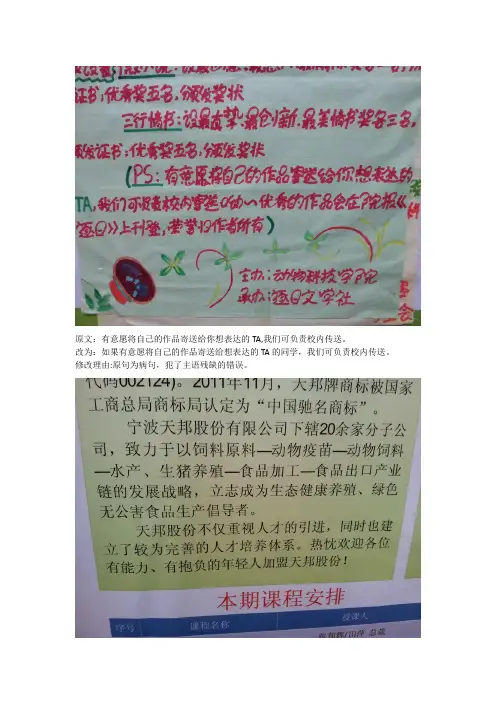 证书;优秀奖五名,颁发奖状
三行情书:设最真挚、最创新、最美情书奖各三名,
颁发证书;优秀奖五名,颁发奖状
(PS:有意愿将自己的作品寄送给你想表达的
TA,我们可负责校内寄送哟~优秀的作品会在院报《
逐日》上刊登,荣誉归作者所有)
主办:动物科技学院
承办:逐日文学社
原文:有意愿将自己的作品寄送给你想表达的 TA,我们可负责校内传送。
改为:如果有意愿将自己的作品寄送给想表达的 TA 的同学,我们可负责校内传送。
修改理由:原句为病句,犯了主语残缺的错误。
代码002124)。2011年11月,大邦牌商标被国家
工商总局商标局认定为“中国驰名商标”。
宁波天邦股份有限公司下辖20余家分子公
司,致力于以饲料原料—动物疫苗—动物饲料
—水产、生猪养殖—食品加工—食品出口产业
链的发展战略,立志成为生态健康养殖、绿色
无公害食品生产倡导者。
天邦股份不仅重视人才的引进,同时也建
立了较为完善的人才培养体系。热忱欢迎各位
有能力、有抱负的年轻人加盟天邦股份!
本期课程安排
序号 课程名称 授课人
总裁